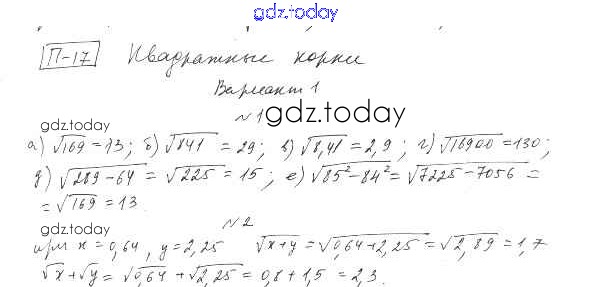 gdz.today
П-17 Квадратные корни
Вариант 1
№1
gdz.today
gdz.today
а) √169 = 13; б) √841 = 29; в) √8,41 = 2,9; г) √16900 = 130;
д) √289-64 = √225 = 15; е) √85²-84² = √7225-7056 =
= √169 = 13
№2
gdz.today
при x = 0,64, y = 2,25 √x+y = √0,64+2,25 = √2,89 = 1,7
√x + √y = √0,64 + √2,25 = 0,8 + 1,5 = 2,3